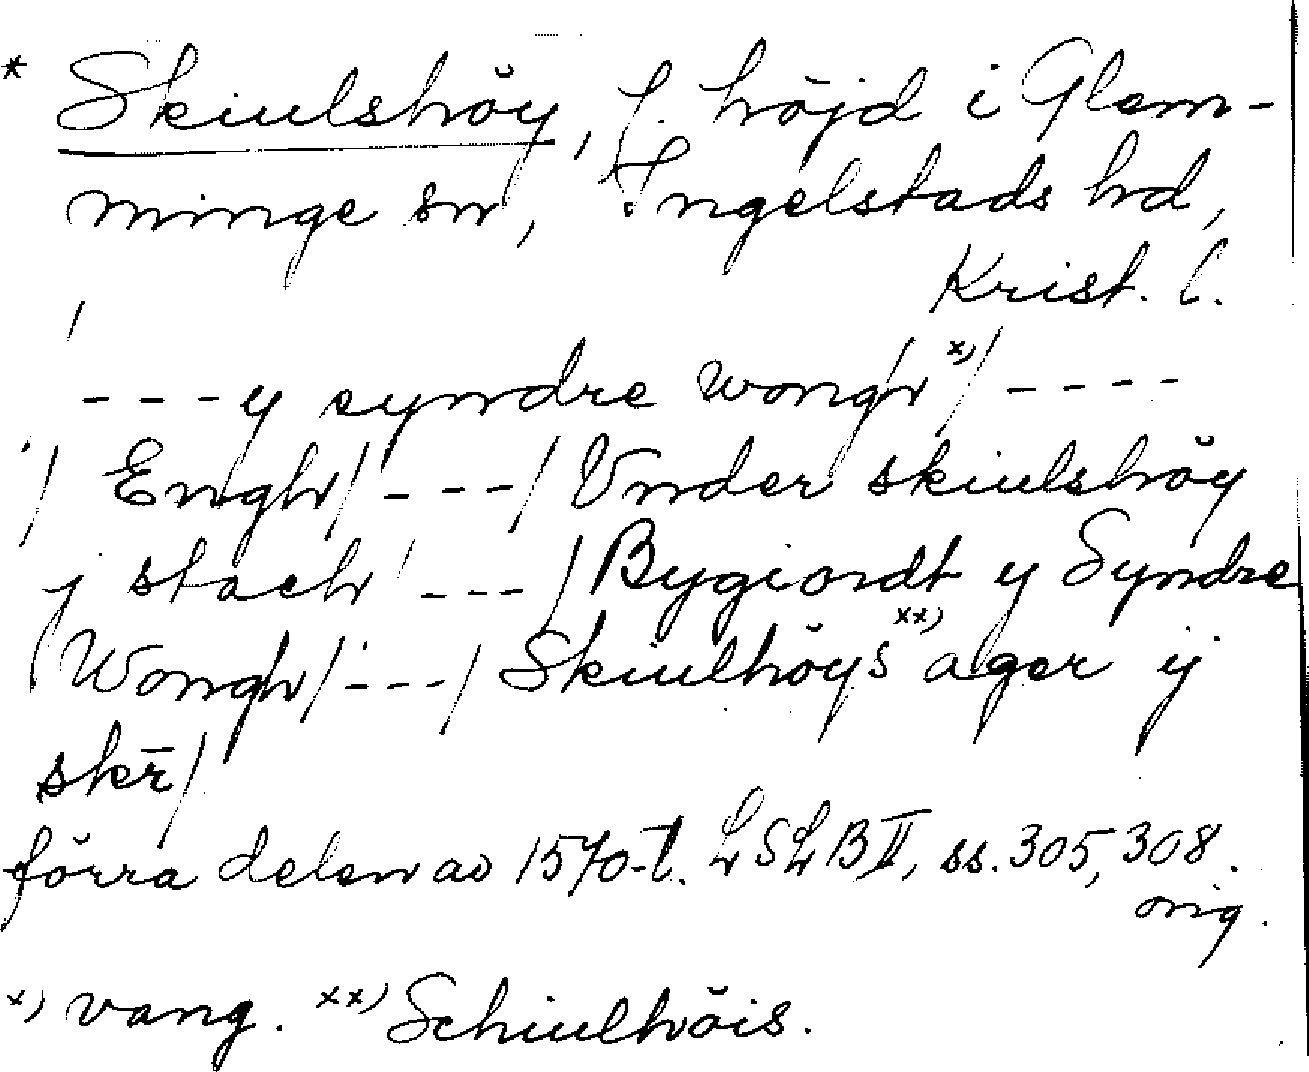 * Skiulshöy, f. höjd i Glem-
minge sn, Ingelstads hd,
Krist. l.
- - - y syndre wongh x) / - - - -
/ Engh / - - - / Vnder skiulshöy
j stach - - - / Bygiordt y Syndre
Wongh / - - - / Skiulhöys xx) ager ij
sker̄ /
förra delen av 1570-t. LSLB II, ss. 305, 308.
orig.
x) vang. xx) Schiulhöis.